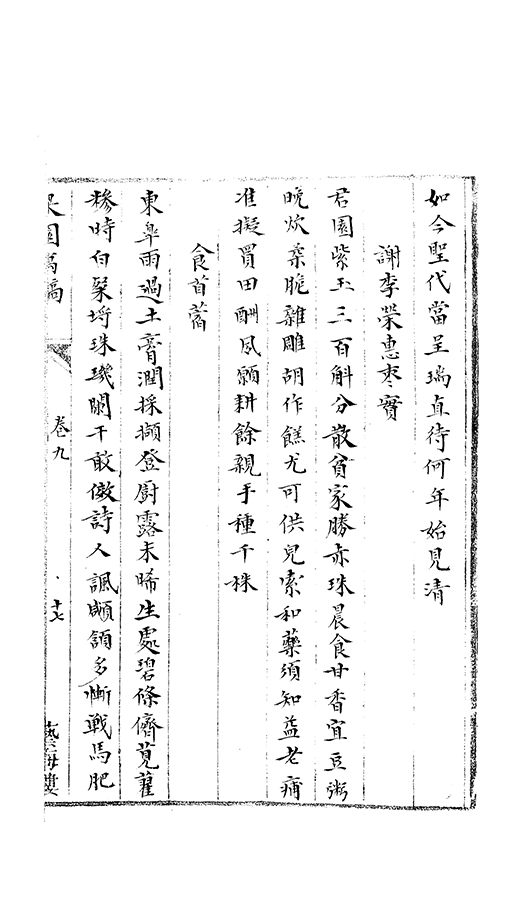 如今聖代當呈瑞直待何年始見清
謝李榮惠枣實
君園紫玉三百斛分散貧家勝赤珠晨食甘香宜豆粥
晚炊柔脆雜雕胡作餻尤可供兒索和藥須知益老痡
准擬買田酬夙願耕餘親手種千株
食苜蓿
東臯雨過土膏潤採擷登厨露未晞生處碧條儕莧藋
糝時白粲埓珠璣闌干敢倣詩人諷頗頷多慚戰馬肥
梁園寓稿
卷九
十七
藝海樓